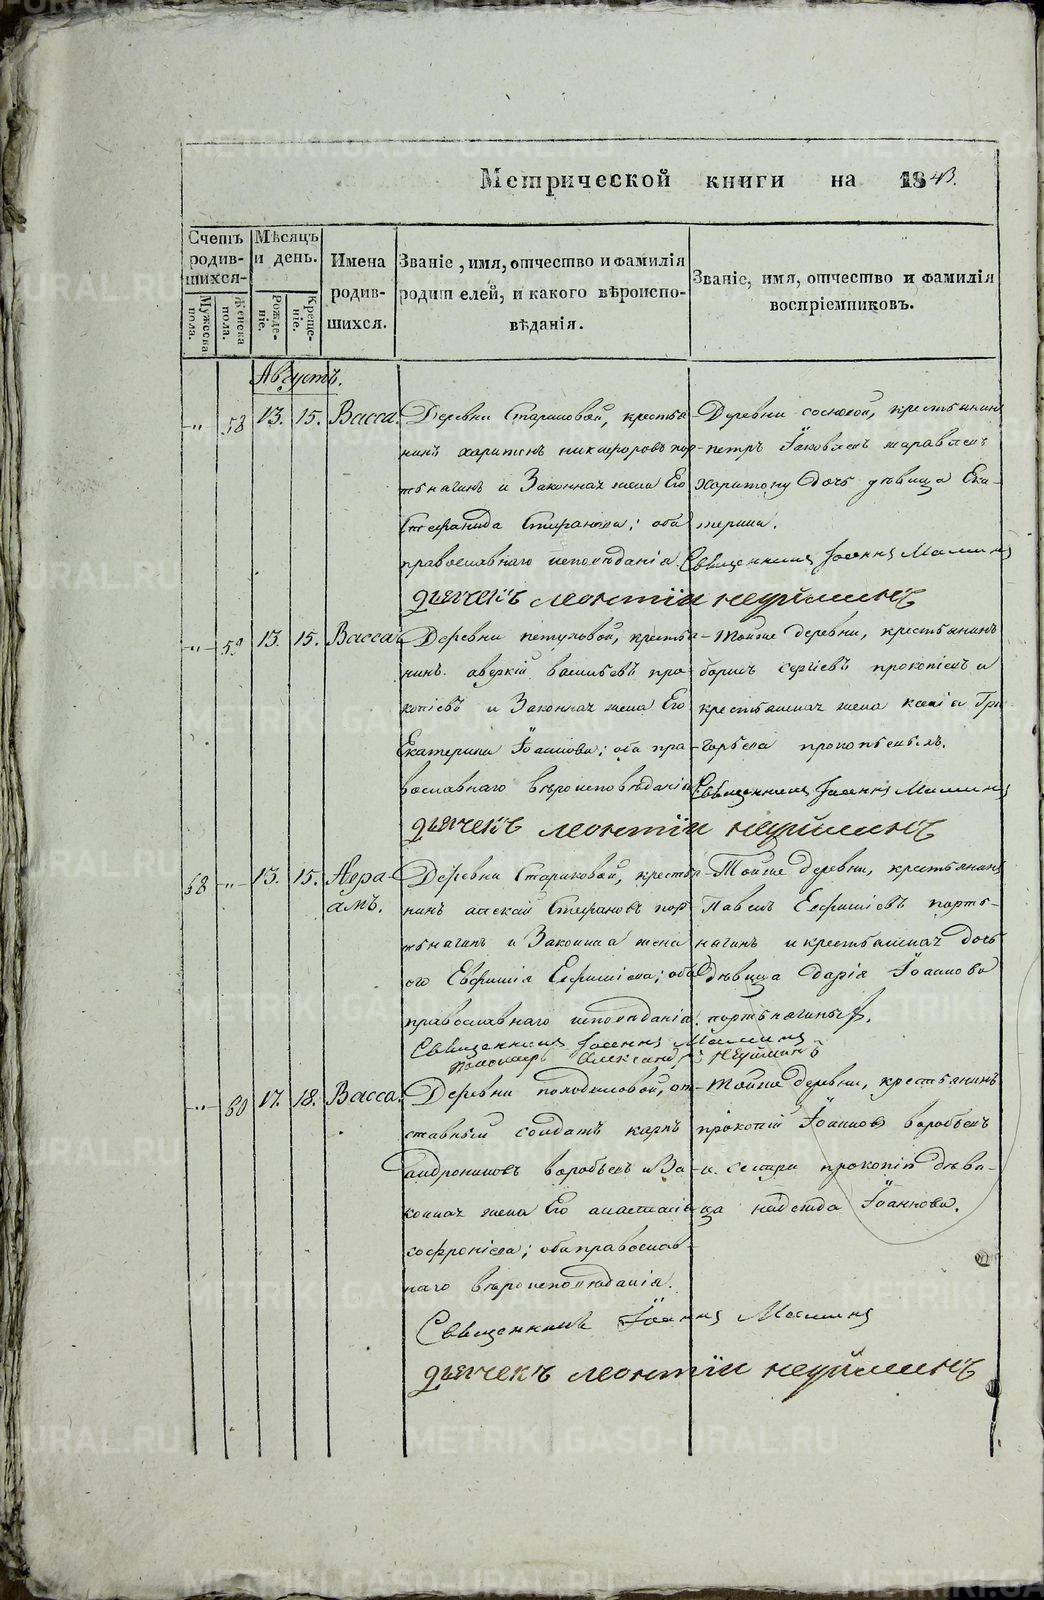 Метрической книги на 1843.
Счетъ родившихся.
Мѣсяцъ и день.
Имена родившихся.
Званіе, имя, отчество и фамилія родителей, и какого вѣроисповѣданія.
Званіе, имя, отчество и фамилія воспріемниковъ.
Мужеска пола.
Женска пола.
Рожденіе.
Крещеніе.
Августъ.
-„- 58 13. 15. Васса.
Деревни крестья
нинъ харитонъ никифоровъ пор
тьнягинъ и Законная жена Его
Стефанида Стефанова; оба
православнаго исповѣданія.
Деревни сосновой, крестьянинъ
петръ Іаковлевъ
Харитону дочь дѣвица Ека-
терина.
Священникъ Іоаннъ Маминъ
дьячекъ леонтіи неуйминъ
-„- 59 13. 15. Васса
Деревни крестья
нинъ аверкій васильевъ про
копіевъ и Законная жена Его
Екатерина Іоаннова; оба пра-
вославнаго вѣроисповѣданія
Тойже деревни, крестьянинъ
борисъ сергіевъ прокопіевъ и
крестьянская жена ксенія Гри
горьева
Священникъ Іоаннъ Маминъ
дьячекъ леонтіи неуйминъ
68 -„- 13. 15. Авра-
амъ.
Деревни Стариковой, крестья
нинъ Стефановъ пор
тьнягинъ и Законна жена
его Евфимія Евфиміева; оба
православнаго исповѣданія.
Тойже деревни, крестьянинъ
Павелъ Евфиміевъ порть-
нягинъ и крестьянская дочь
Дѣвица Дарія Іоаннова
портьнягиныхъ.
Священникъ Іоаннъ Маминъ
пономарь Александръ Неуйминъ
-„- 60 17. 18. Васса.
Деревни от-
ставный солдатъ карпъ
андрониковъ воробьевъ и За-
конная жена Его анастасія
софроніева; оба православ-
наго вѣроисповѣданія.
Тойже деревни, крестьянинъ
прокопій Іоанновъ воробьевъ
и сестра прокопія дѣви-
ца надежда Іоаннова.
Священникъ Іоаннъ Маминъ
дьячекъ леонтіи неуйминъ
METRIKI.GASO-URAL.RU